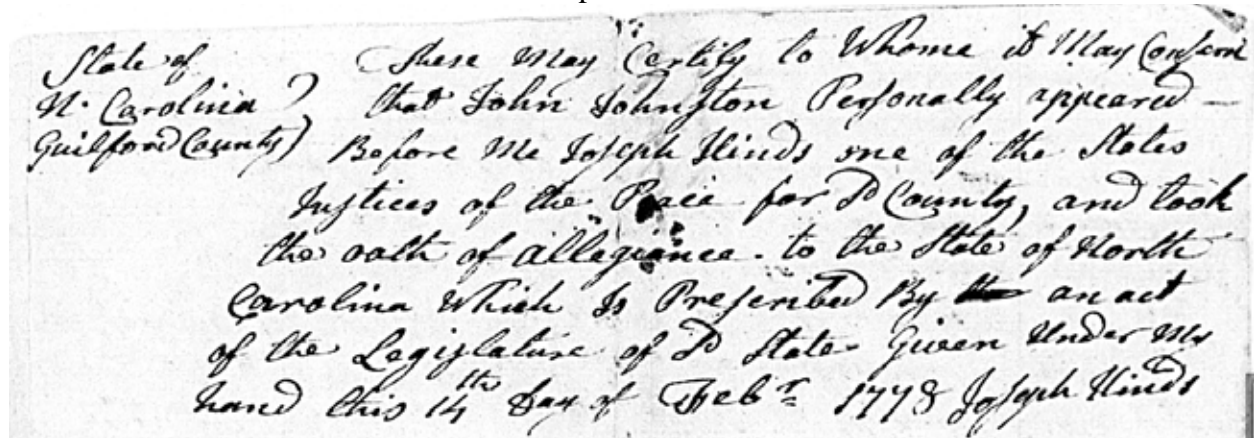 State of
N. Carolina
Guilford County)
These May Certify to Whome it May Consern
that John Johnston Personally appeared —
Before Me Joseph Hinds one of the States
Justices of the Peace for Sd County, and took
the oath of allegiance to the State of North
Carolina Which Is Prescribed By an act
of the Legislature of Sd State Given Under My
hand this 14th Day of Febr. 1778 Joseph Hinds